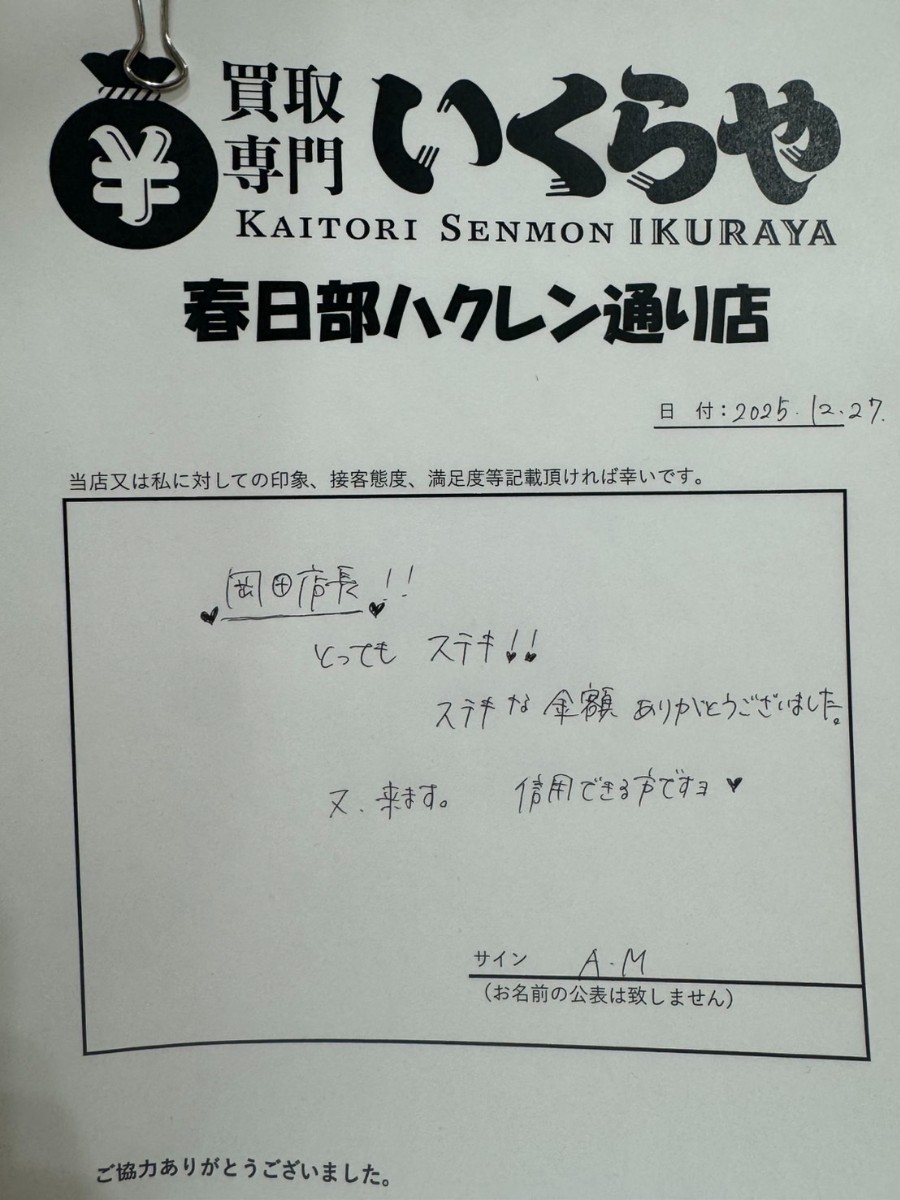 ¥
買取
専門
いくらや
KAITORI SENMON IKURAYA
春日部ハクレン通り店
日 付：2025.12.27.
当店又は私に対しての印象、接客態度、満足度等記載頂ければ幸いです。
♥岡田店長♥!!
とっても ステキ!!
ステキな 金額 ありがとうございました。
又、来ます。 信用できる方ですヨ♥
サイン A.M
（お名前の公表は致しません）
ご協力ありがとうございました。